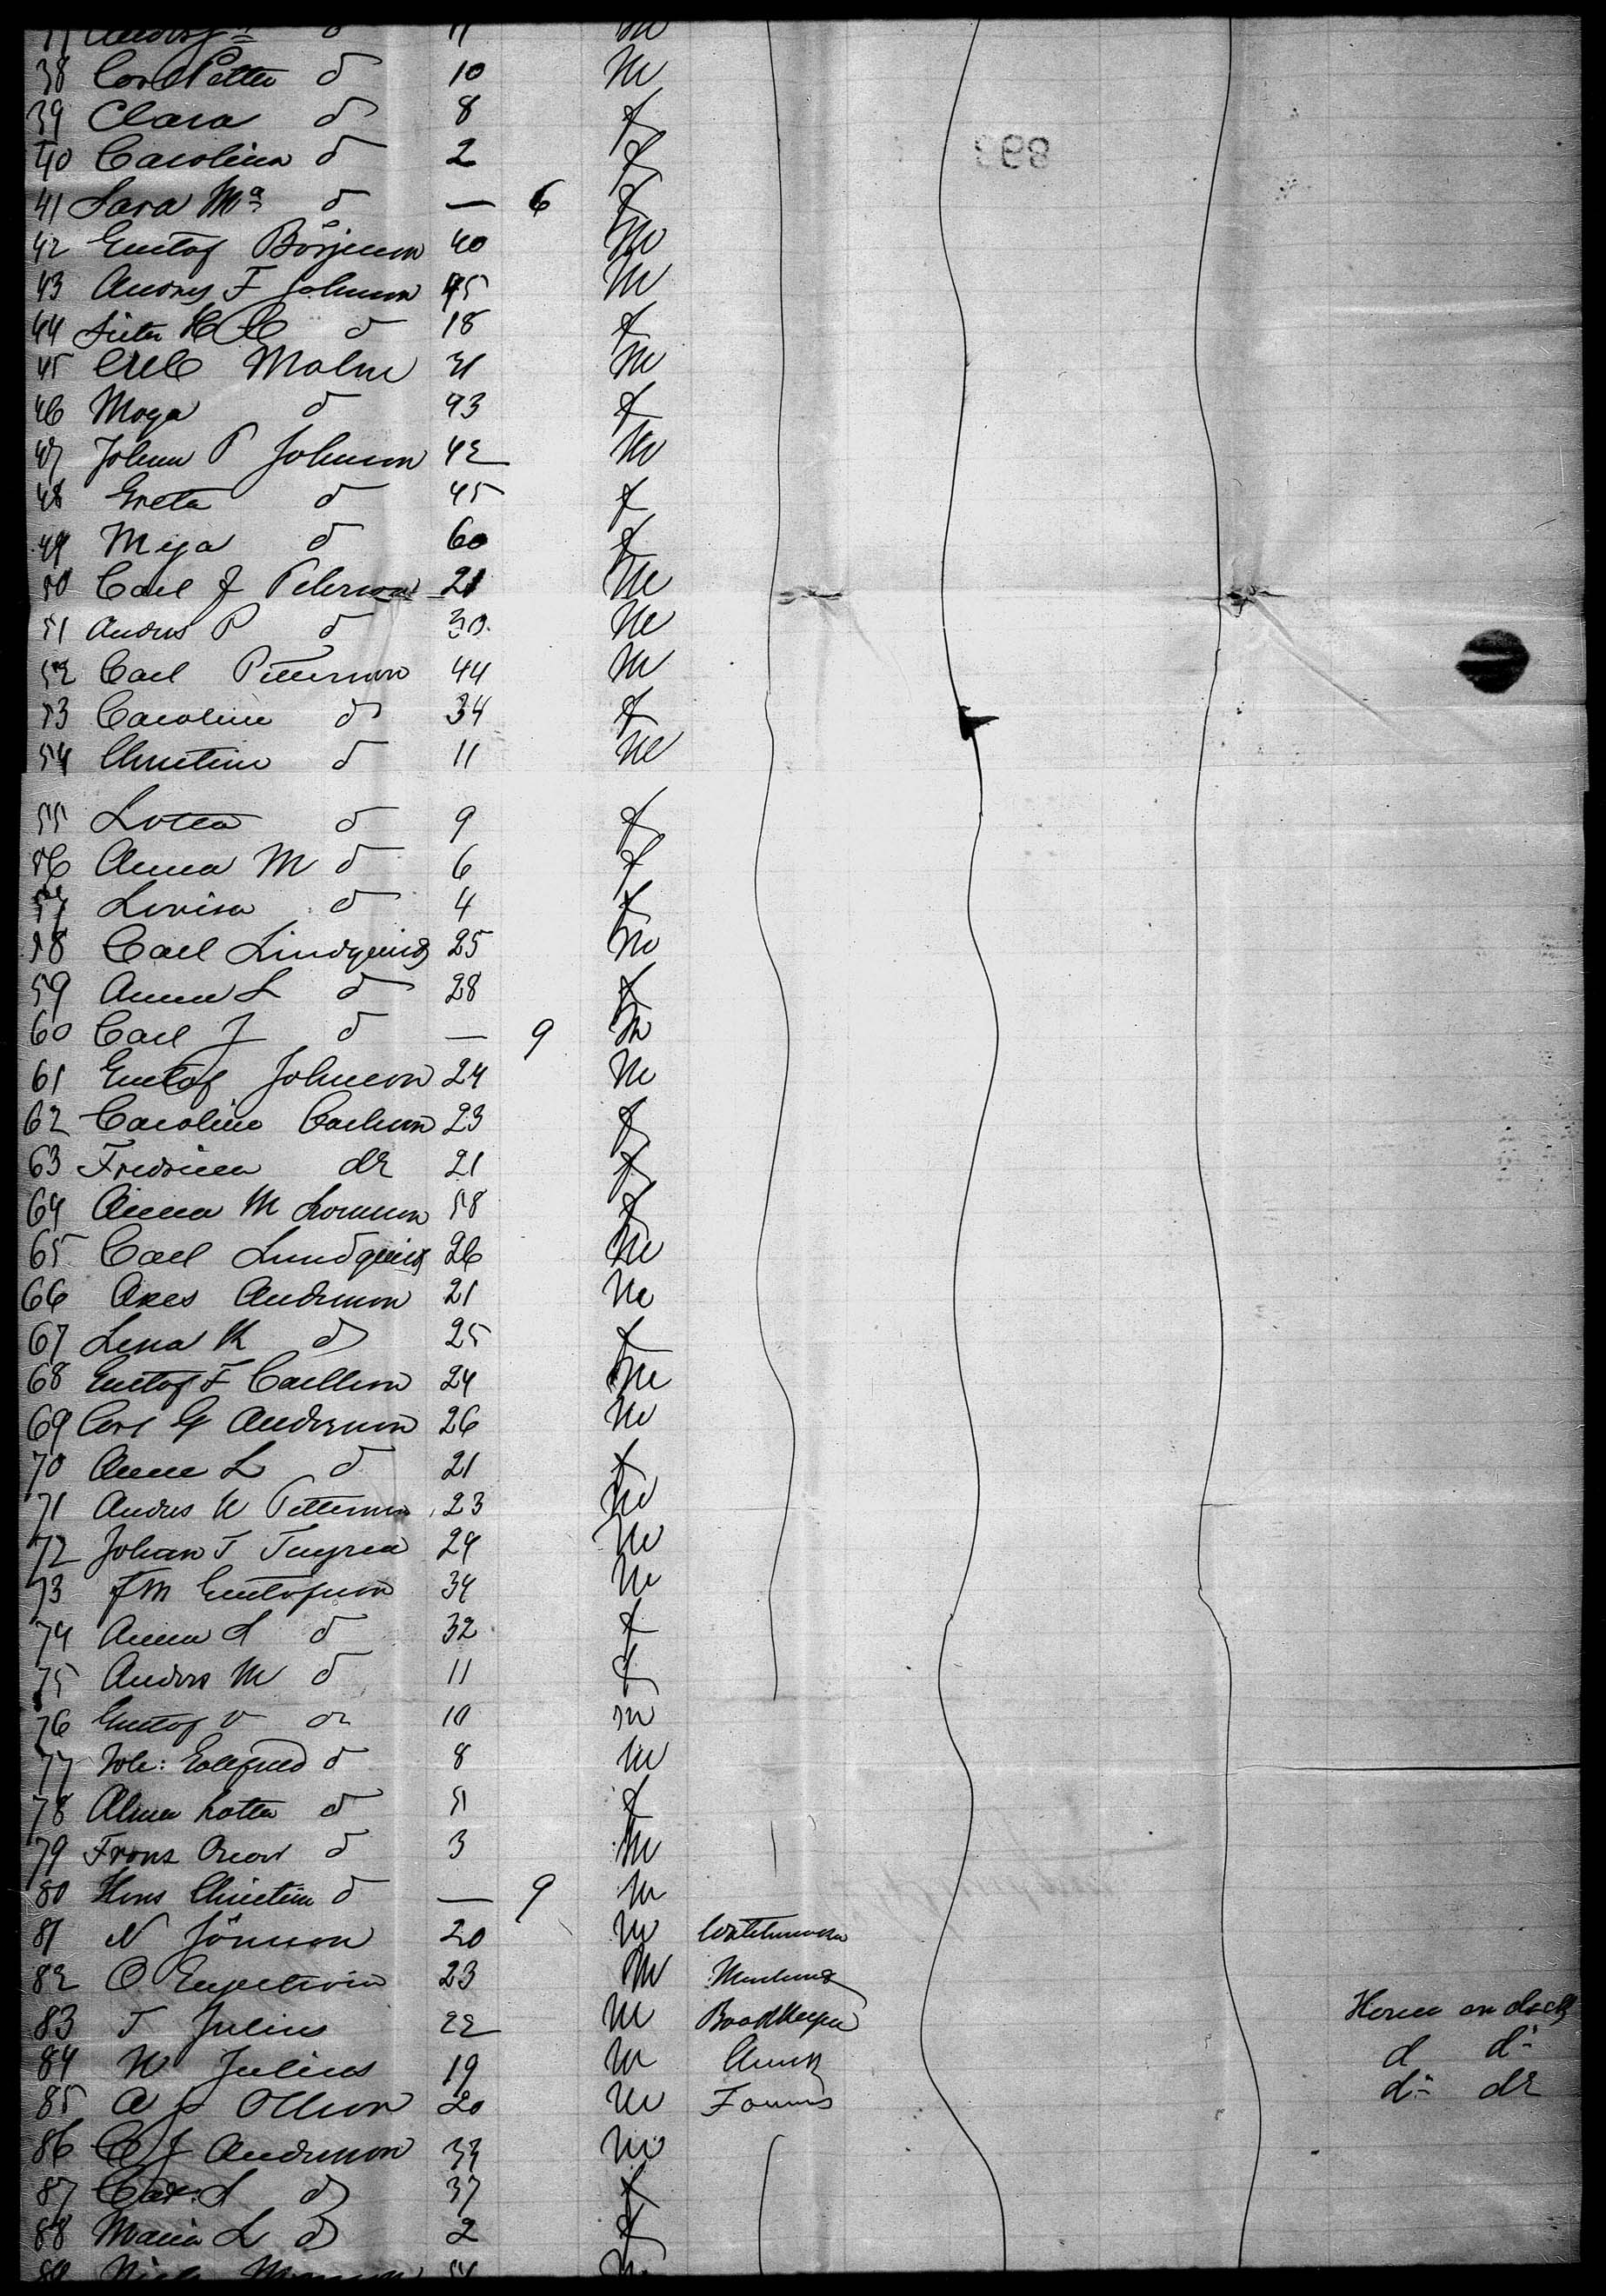 38 Carl Petter d 10 m
39 Clara do 8 f
40 Carolina d 2 f
41 Sara Ma d — 6 f
42 Gustaf Börjeson 40 m
43 Anders F Johnson 45 m
44 Sister d 18 f
45 Malm 31 m
46 Maya d 43 f
47 Johan P Johnson 42 m
48 Greta d 45 f
49 Maja d 60 f
50 Carl J Peterson 21 m
51 Anders P d 30 m
52 Carl Petterson 44 m
53 Caroline do 34 f
54 Christine d 11 m
55 Lotta d 9 f
56 Anna M d 6 f
57 Lovisa d 4 f
58 Carl Lindquist 25 m
59 Anna L d 28 f
60 Carl J d — 9 m
61 Gustaf Johnson 24 m
62 Caroline Carlson 23 f
63 Fredrica do 21 f
64 Anna M 58 f
65 Carl Lundquist 26 m
66 Anderson 21 m
67 Lena K do 25 f
68 Gustaf F Carlson 24 m
69 Carl G Anderson 26 m
70 Anna L d 21 f
71 Anders W Petterson 23 m
72 Johan T 24 m
73 J M Gustafson 34 m
74 Anna S d 32 f
75 Anders M d 11 f
76 Gustaf V do 10 m
77 Joh: d 8 m
78 Alma Lotta d 5 f
79 Frans Oscar d 3 m
80 Hans Christian d — 9 m
81 N Jönson 20 m Watchmaker
82 O 23 m
83 T Julius 22 m Bookkeeper Horses on deck
84 W Julius 19 m d do
85 A J Ollson 20 m Farmer do do
86 C J Anderson 33 m
87 Car: S do 37 f
88 Maria L do 2 f